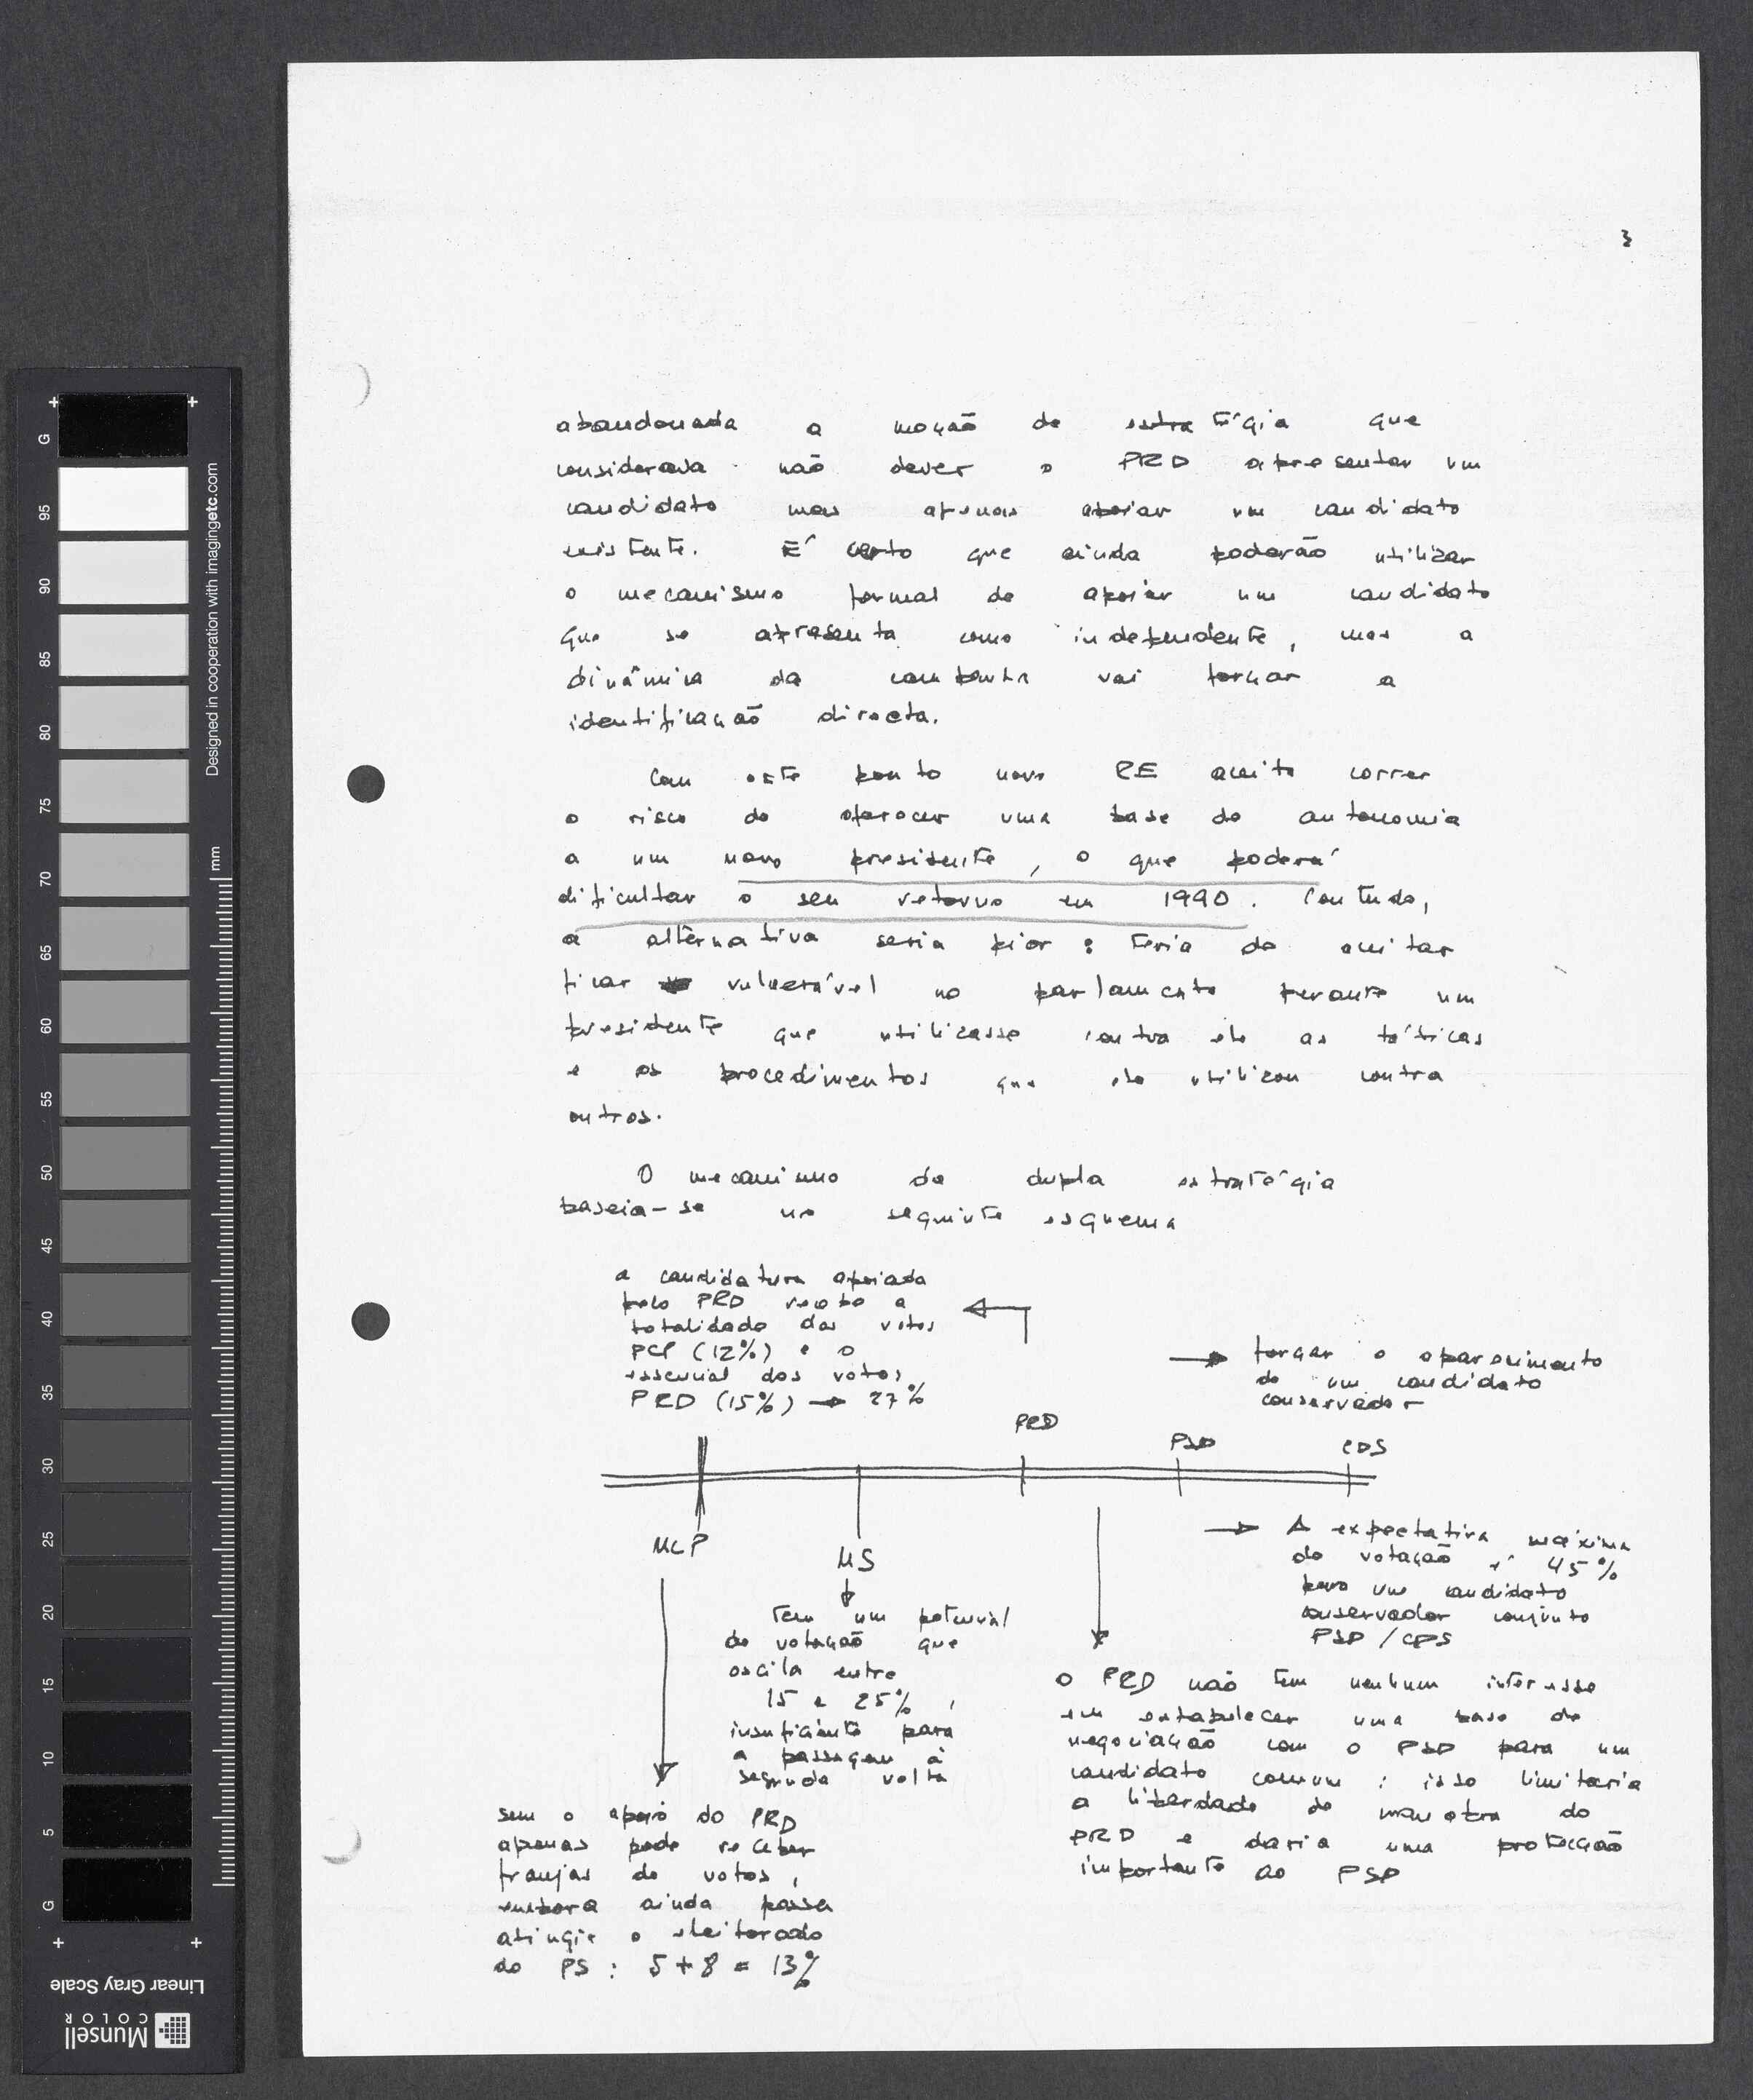 3
abandonada a moção de estratégia que
considerava não dever o PRD apresentar um
candidato mas apenas apoiar um candidato
existente. É certo que ainda poderão utilizar
o mecanismo formal de apoiar um candidato
que se apresenta como independente, mas a
dinâmica da campanha vai tornar a
identificação directa.
Com este ponto novo RE aceita correr
o risco de oferecer uma base de autonomia
a um novo presidente, o que poderá
dificultar o seu retorno em 1990. Contudo,
a alternativa seria pior : teria de aceitar
ficar vulnerável no parlamento perante um
presidente que utilizasse contra ele as tácticas
e os procedimentos que ele utilizou contra
outros.
O mecanismo da dupla estratégia
baseia-se no seguinte esquema
a candidatura apoiada
pelo PRD recebe a
totalidade dos votos
PCP (12%) e o
essencial dos votos
PRD (15%) → 27%
→ forçar o aparecimento
de um candidato
conservador
PRD
PSD
CDS
MLP
MS
tem um potencial
de votação que
oscila entre
15 e 25%,
insuficiente para
a passagem à
segunda volta
→ A expectativa máxima
de votação é 45%
para um candidato
conservador conjunto
PSD/CDS
O PRD não tem nenhum interesse
em estabelecer uma base de
negociação com o PSD para um
candidato comum : isso limitaria
a liberdade de manobra do
PRD e daria uma protecção
importante ao PSD
sem o apoio do PRD
apenas pode receber
franjas de votos,
embora ainda possa
atingir o eleitorado
do PS : 5+8 = 13%
G
95
90
85
80
75
70
65
60
55
50
45
40
35
30
25
20
15
10
5
G
mm
Designed in cooperation with imagingetc.com
Linear Gray Scale
Munsell
COLOR